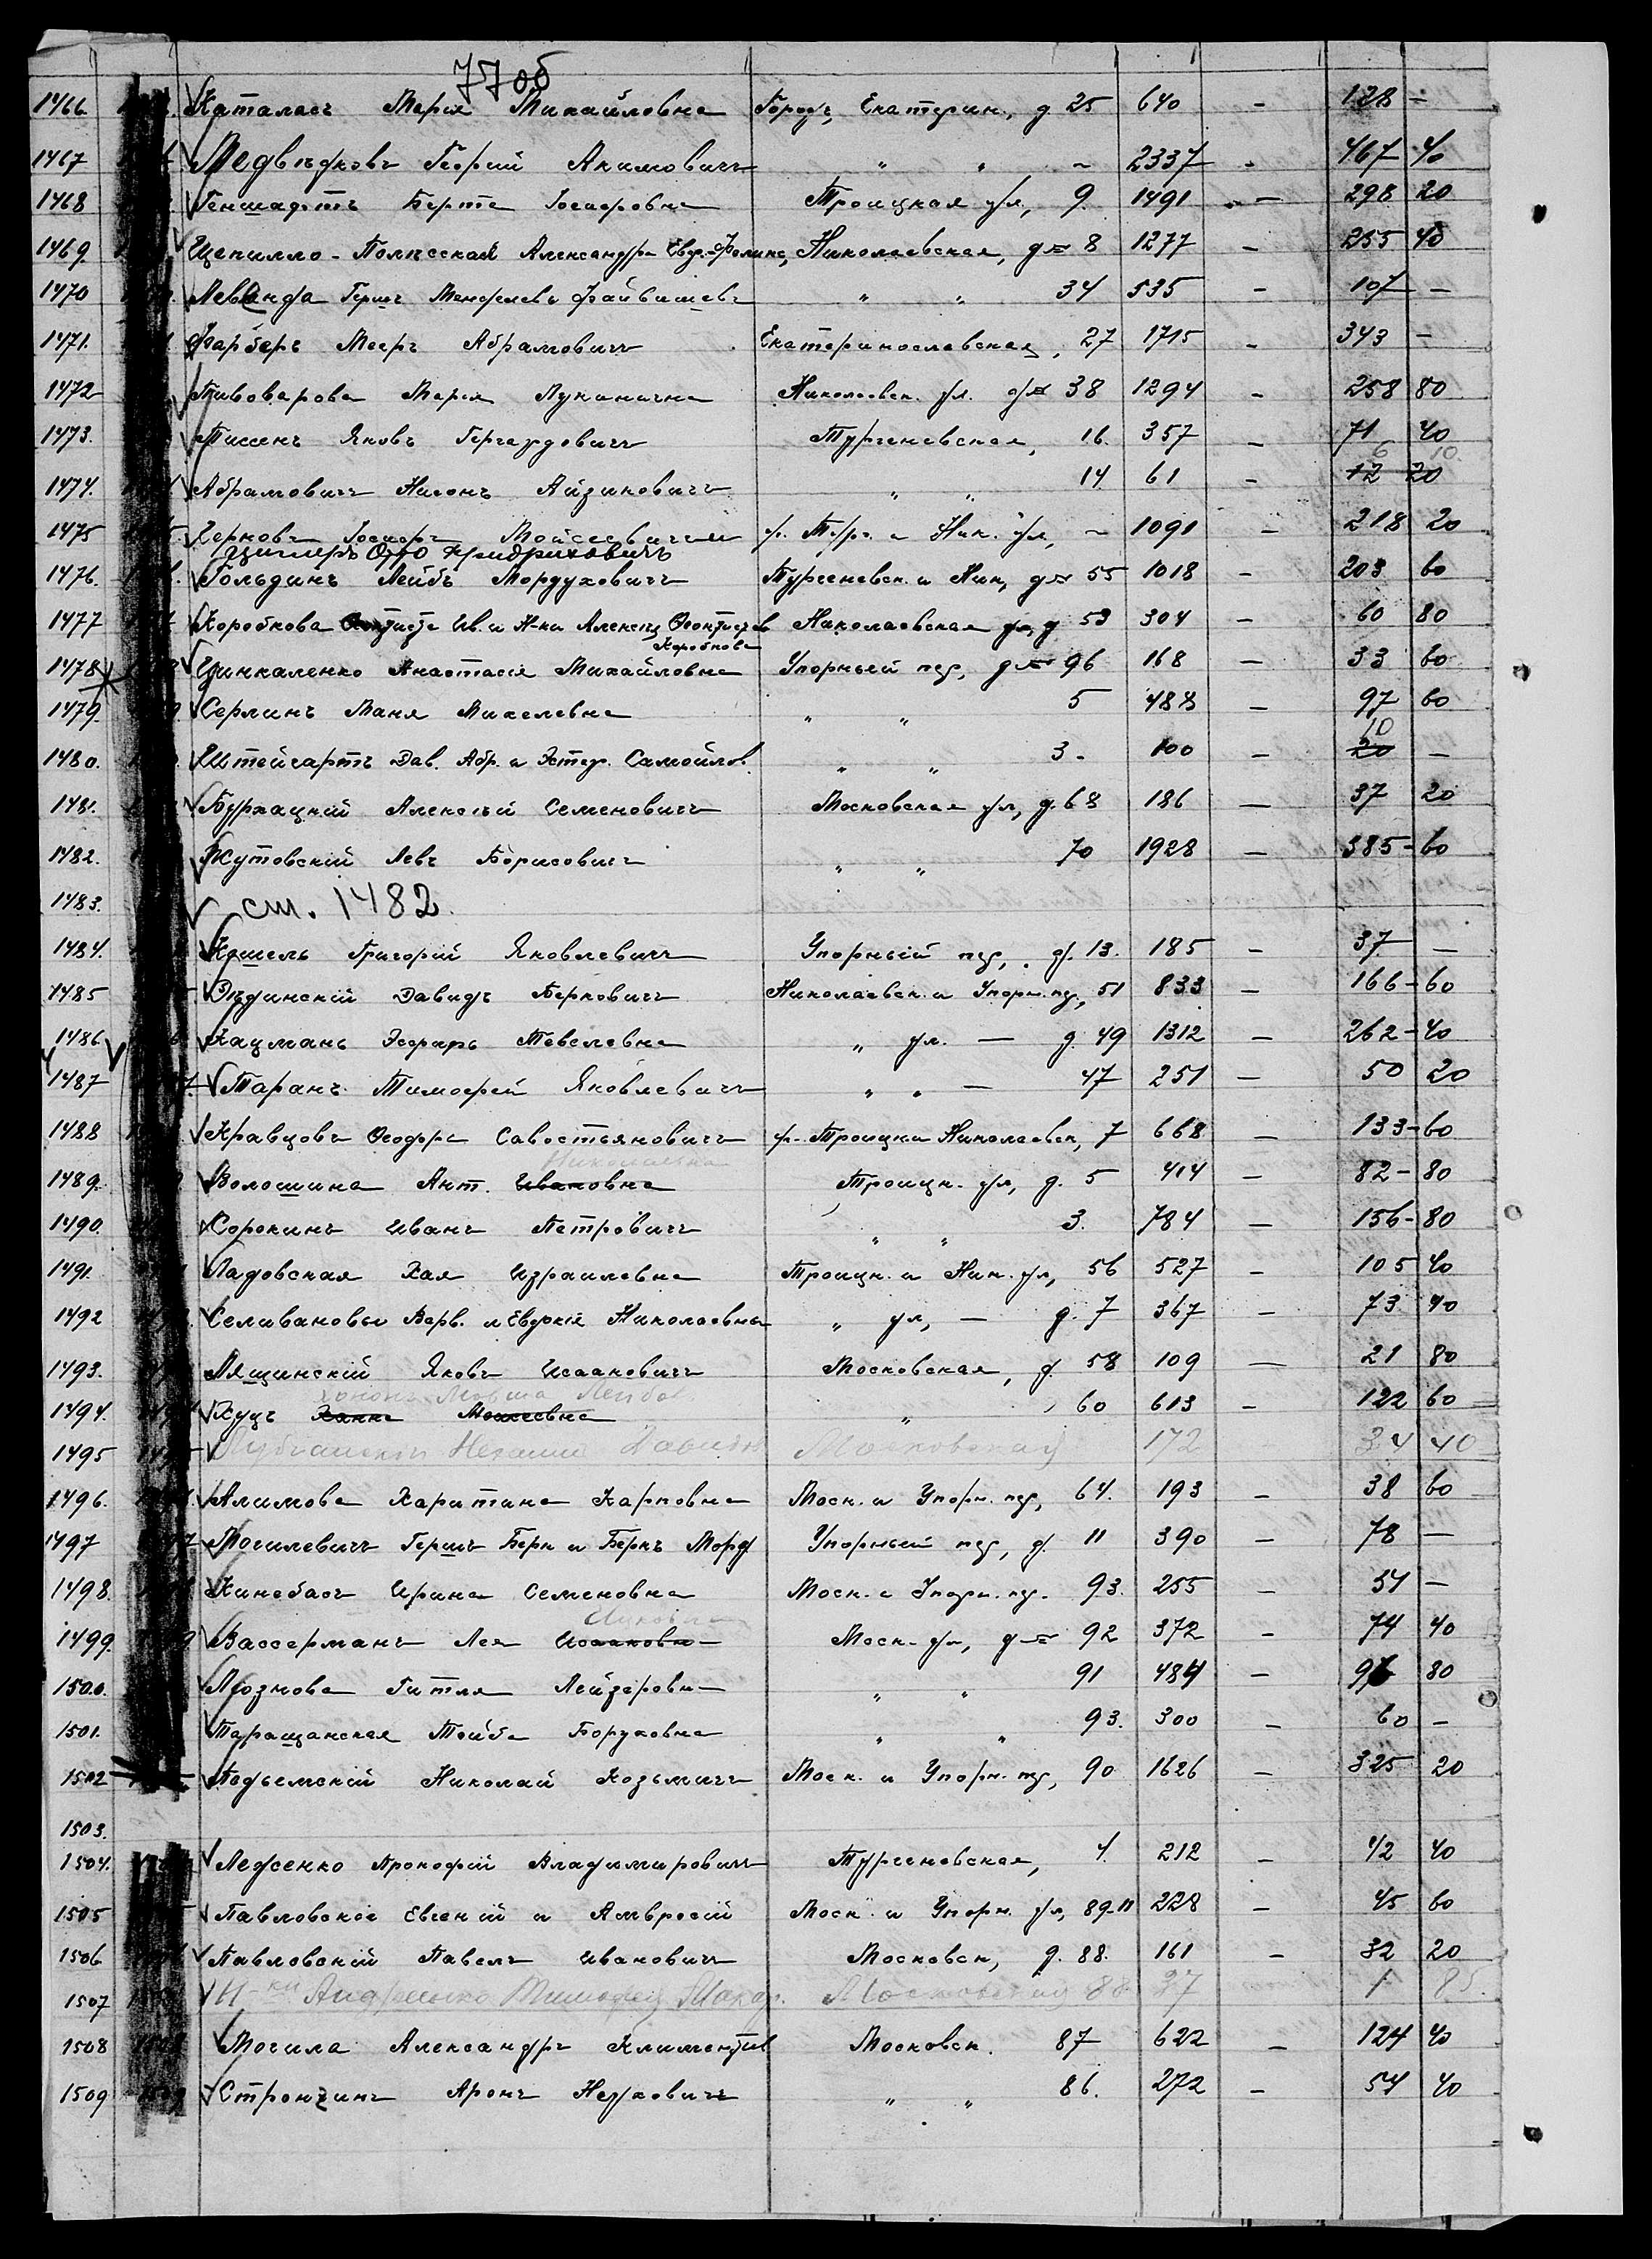 77 об
1466. Каталась Марія Михайловна Город., Екатерин., д. 25 640 - 128 -
1467 Медвѣдковъ Георгій Акимовичъ " " - 2337 - 467 40
1468 Берта Іосифовна Троицкая ул., 9. 1491 - 298 20
1469 Цепилло-Полѣсская Александра Николаевская, д. 8 1277 - 255 40
1470 Леванда Гершъ Менделевъ Файвишевъ " " 34 535 - 107 -
1471. Фарберъ Мееръ Абрамовичъ Екатеринославская, 27 1715 - 343 -
1472 Пивоварова Марія Лукинична Николаевск. ул. д. 38 1294 - 258 80
1473. Яковъ Тургеневская, 16. 357 - 71 40
1474. Абрамовичъ Нисонъ Айзиковичъ " " 14 61 - 12 20 6 10
1475 Іосифъ Мойсеевичъ у. Тург. и Ник. ул, - 1091 - 218 20
Циммеръ Отто Фридриховичъ
1476. Гольдинъ Лейбъ Мордуховичъ Тургеневск. и Ник, д. 55 1018 - 203 60
1477 Коробкова Ив. и Н-ки Алексѣя Николаевская ул, д 53 304 - 60 80
Коробкова
1478 Цинкаленко Анастасія Михайловна Упорный пер, д. 96 168 - 33 60
1479. Серлинъ Маня Михелевна " " 5 488 - 97 60
1480. Штейгартъ Дав. Абр. и Эстер. Самойлов. " " 3 - 100 - 20 - 10
1481. Бурхацкій Алексѣй Семеновичъ Московская ул, д. 68 186 - 37 20
1482. Жутовскій Левъ Борисовичъ " " 70 1928 - 385 - 60
1483. ст. 1482.
1484. Кошель Григорій Яковлевичъ Упорный пер, д. 13. 185 - 37 -
1485 Давидъ Берковичъ Николаевск. и Упорн. пер, 51 833 - 166 - 60
1486 Кацманъ Эсфирь Тевелевна " ул. - д. 49 1312 - 262 - 40
1487 Таранъ Тимофей Яковлевичъ " " - 47 251 - 50 20
1488 Кравцовъ Ѳеодоръ Савостьяновичъ у. Троицк и Николаевск, 7 668 - 133 - 60
Николаевна
1489. Волошина Ант. Ивановна Троицк. ул, д. 5 414 - 82 - 80
1490. Сорокинъ Иванъ Петровичъ " " 3. 784 - 156 - 80
1491. Ладовская Хая Израилевна Троицк. и Ник. ул, 56 527 - 105 40
1492 Селивановы Варв. и Евдокія Николаевны " ул, - д. 7 367 - 73 40
1493. Лящинскій Яковъ Исааковичъ Московская, д. 58 109 - 21 80
1494. Куцъ Ханна Моисеевна " 60 613 - 122 60
1495 Московская 172 34 40
1496. Алимова Харитина Карповна Моск. и Упорн. пер, 64. 193 - 38 60
1497 Могилевичъ Гершъ Берк и Беркъ Морд. Упорный пер, д. 11 390 - 78 -
1498. Кинебасъ Ирина Семеновна Моск. и Упорн. пер. 93. 255 - 51 -
1499. Вассерманъ Лея Исааковна Моск. ул, д. 92 372 - 74 40
1500. Лознова Гитля Лейзеровна " " 91 484 - 96 80
1501. Таращанская Тойба Боруховна " " 93. 300 - 60 -
1502 Подъемскій Николай Козьмичъ Моск. и Упорн. пер, 90 1626 - 325 20
1503.
1504. Леженко Прокофій Владимировичъ Тургеневская, 4. 212 - 42 40
1505 Павловскіе Евгеній и Амвросій Моск. и Упорн. ул, 89-11 228 - 45 60
1506 Павловскій Павелъ Ивановичъ Московск, д. 88. 161 - 32 20
1507 Н-ки Андрющенко Тимофея Макар. Московская 88 37 1 85.
1508 Могила Александръ Климентьев Московск. 87 622 - 124 40
1509 Стронгинъ Аронъ Нерховичъ " " 86. 272 - 54 40